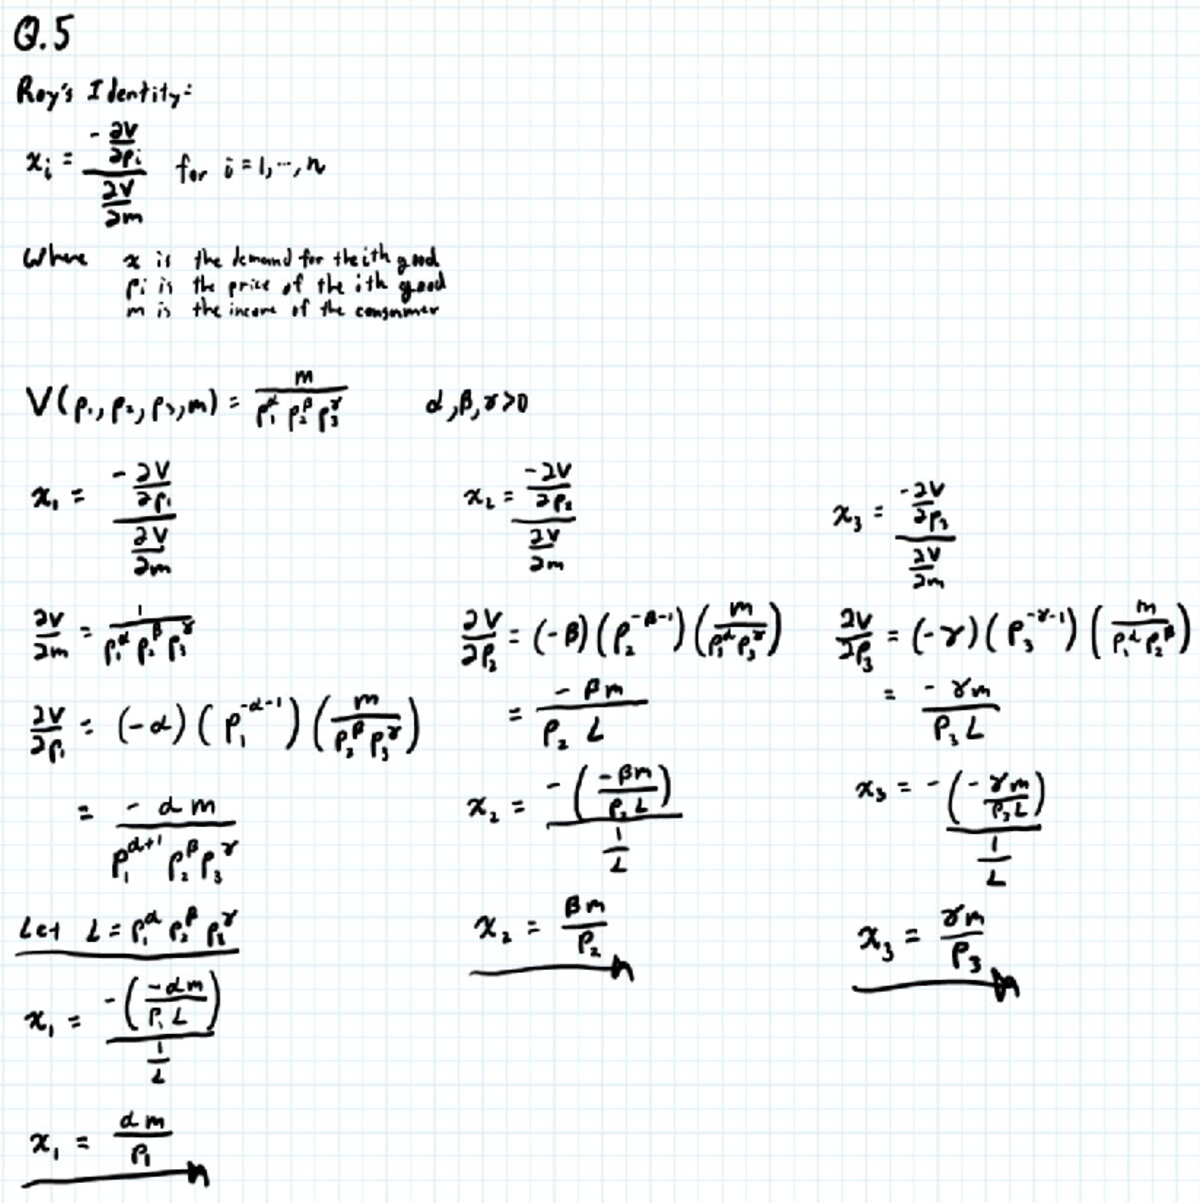 Q.5
Roy's Identity:
x_i = (-∂V/∂p_i) / (∂V/∂m) for i = 1, ..., n
Where x is the demand for the ith good
p_i is the price of the ith good
m is the income of the consumer
V(p_1, p_2, p_3, m) = m / (p_1^α p_2^β p_3^γ)    α, β, γ > 0
x_1 = (-∂V/∂p_1) / (∂V/∂m)
∂V/∂m = 1 / (p_1^α p_2^β p_3^γ)
∂V/∂p_1 = (-α)(p_1^{-α-1})(m / (p_2^β p_3^γ))
= -αm / (p_1^{α+1} p_2^β p_3^γ)
Let L = p_1^α p_2^β p_3^γ
x_1 = -(-αm / (p_1 L)) / (1/L)
x_1 = αm / p_1
x_2 = (-∂V/∂p_2) / (∂V/∂m)
∂V/∂p_2 = (-β)(p_2^{-β-1})(m / (p_1^α p_3^γ))
= -βm / (p_2 L)
x_2 = -(-βm / (p_2 L)) / (1/L)
x_2 = βm / p_2
x_3 = (-∂V/∂p_3) / (∂V/∂m)
∂V/∂p_3 = (-γ)(p_3^{-γ-1})(m / (p_1^α p_2^β))
= -γm / (p_3 L)
x_3 = -(-γm / (p_3 L)) / (1/L)
x_3 = γm / p_3